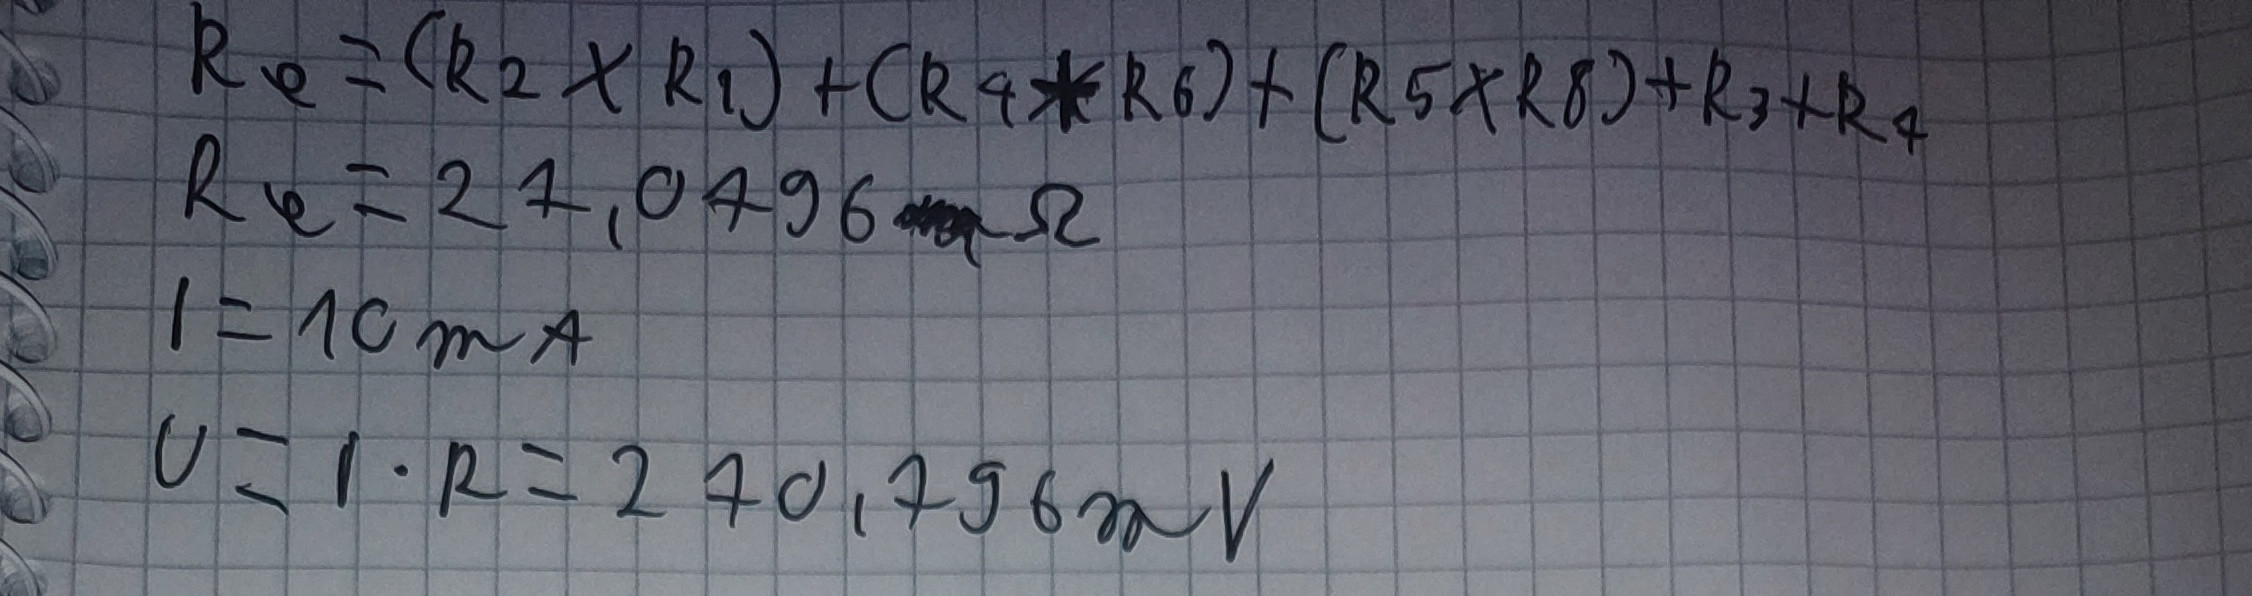 Re = (R2 X R1) + (R4 * R6) + (R5 X R8) + R3 + R4
Re = 27,0796 Ω
I = 10 mA
U = I · R = 270,796 mV